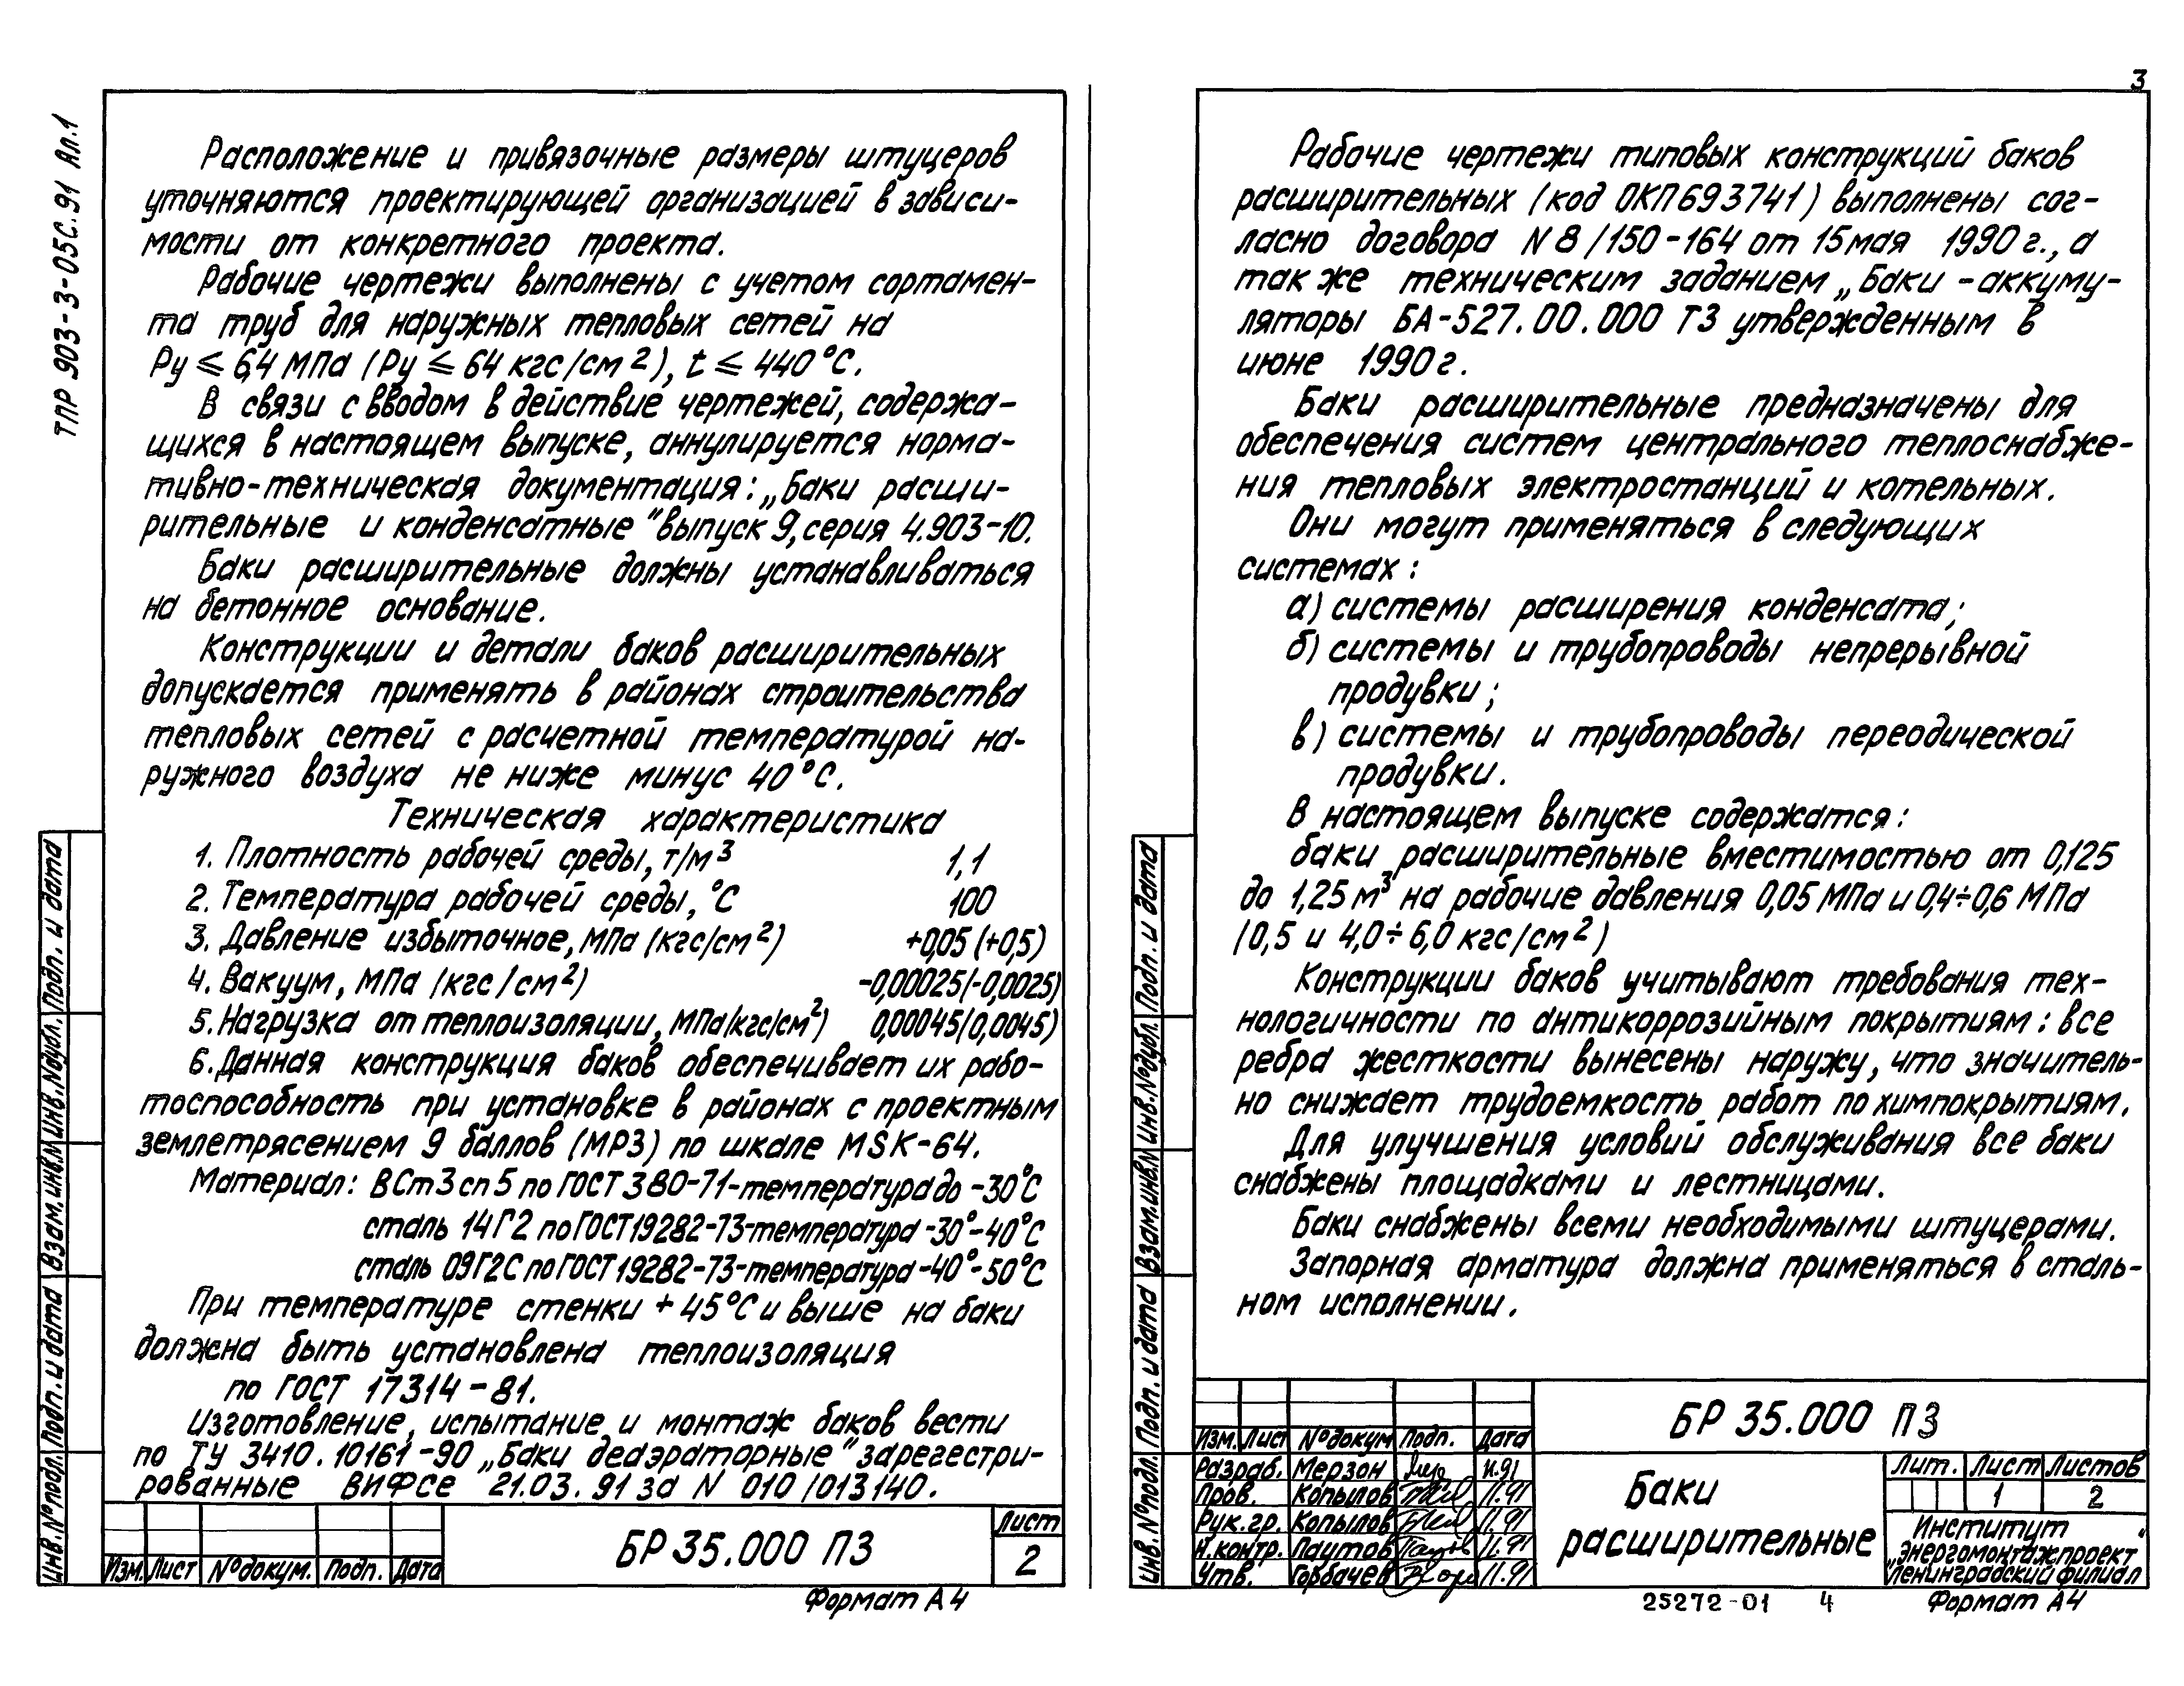 ТПР 903-3-05С.91 Ал.1
Расположение и привязочные размеры штуцеров
уточняются проектирующей организацией в зависи-
мости от конкретного проекта.
Рабочие чертежи выполнены с учетом сортамен-
та труб для наружных тепловых сетей на
Ру ≤ 6,4 МПа (Ру ≤ 64 кгс/см²), t ≤ 440°С.
В связи с вводом в действие чертежей, содержа-
щихся в настоящем выпуске, аннулируется норма-
тивно-техническая документация: „Баки расши-
рительные и конденсатные" выпуск 9, серия 4.903-10.
Баки расширительные должны устанавливаться
на бетонное основание.
Конструкции и детали баков расширительных
допускается применять в районах строительства
тепловых сетей с расчетной температурой на-
ружного воздуха не ниже минус 40°С.
Техническая характеристика
1. Плотность рабочей среды, т/м³ 1,1
2. Температура рабочей среды, °С 100
3. Давление избыточное, МПа (кгс/см²) +0,05 (+0,5)
4. Вакуум, МПа (кгс/см²) -0,00025(-0,0025)
5. Нагрузка от теплоизоляции, МПа(кгс/см²) 0,00045(0,0045)
6. Данная конструкция баков обеспечивает их рабо-
тоспособность при установке в районах с проектным
землетрясением 9 баллов (МРЗ) по шкале MSK-64.
Материал: ВСт3сп5 по ГОСТ 380-71-температура до -30°С
сталь 14Г2 по ГОСТ 19282-73-температура -30°-40°С
сталь 09Г2С по ГОСТ 19282-73-температура -40°-50°С
При температуре стенки +45°С и выше на баки
должна быть установлена теплоизоляция
по ГОСТ 17314-81.
Изготовление, испытание и монтаж баков вести
по ТУ 3410.10161-90 „Баки деаэраторные" зарегестри-
рованные ВИФСе 21.03.91 за N 010/013140.
Изм. Лист № докум. Подп. Дата
БР 35.000 ПЗ
Лист
2
Формат А4
Инв. № подл. Подп. и дата Взам. инв. N Инв. № дубл. Подп. и дата
3
Рабочие чертежи типовых конструкций баков
расширительных (код ОКП 693741) выполнены сог-
ласно договора N 8/150-164 от 15 мая 1990 г., а
так же техническим заданием „Баки-аккуму-
ляторы БА-527.00.000 ТЗ утвержденным в
июне 1990 г.
Баки расширительные предназначены для
обеспечения систем центрального теплоснабже-
ния тепловых электростанций и котельных.
Они могут применяться в следующих
системах:
а) системы расширения конденсата;
б) системы и трубопроводы непрерывной
продувки;
в) системы и трубопроводы переодической
продувки.
В настоящем выпуске содержатся:
баки расширительные вместимостью от 0,125
до 1,25 м³ на рабочие давления 0,05 МПа и 0,4÷0,6 МПа
(0,5 и 4,0÷6,0 кгс/см²)
Конструкции баков учитывают требования тех-
нологичности по антикоррозийным покрытиям: все
ребра жесткости вынесены наружу, что значитель-
но снижает трудоемкость работ по химпокрытиям.
Для улучшения условий обслуживания все баки
снабжены площадками и лестницами.
Баки снабжены всеми необходимыми штуцерами.
Запорная арматура должна применяться в сталь-
ном исполнении.
Инв. № подл. Подп. и дата Взам. инв. N Инв. № дубл. Подп. и дата
Изм. Лист № докум Подп. Дата
Разраб. Мерзон 11.91
Пров. Копылов 11.91
Рук.гр. Копылов 11.91
Н.контр. Паутов 11.91
Утв. Горбачев 11.91
БР 35.000 ПЗ
Баки
расширительные
Лит. Лист Листов
1 2
Институт
„Энергомонтажпроект"
Ленинградский филиал
25272-01 4
Формат А4